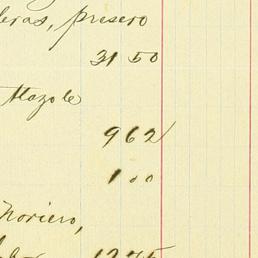 presero
31 50
Mazole
962
1 00
noriero,
1275